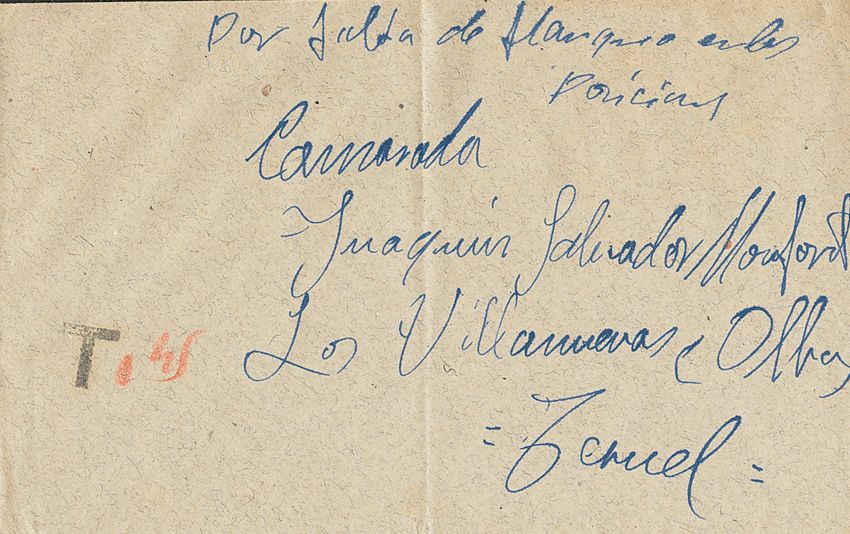 Por falta de flanqueo en las
Posicions
Camarada
Juaquin Salvador Monfort
Los Villanuevas (Olba)
= Teruel =
T 0'45